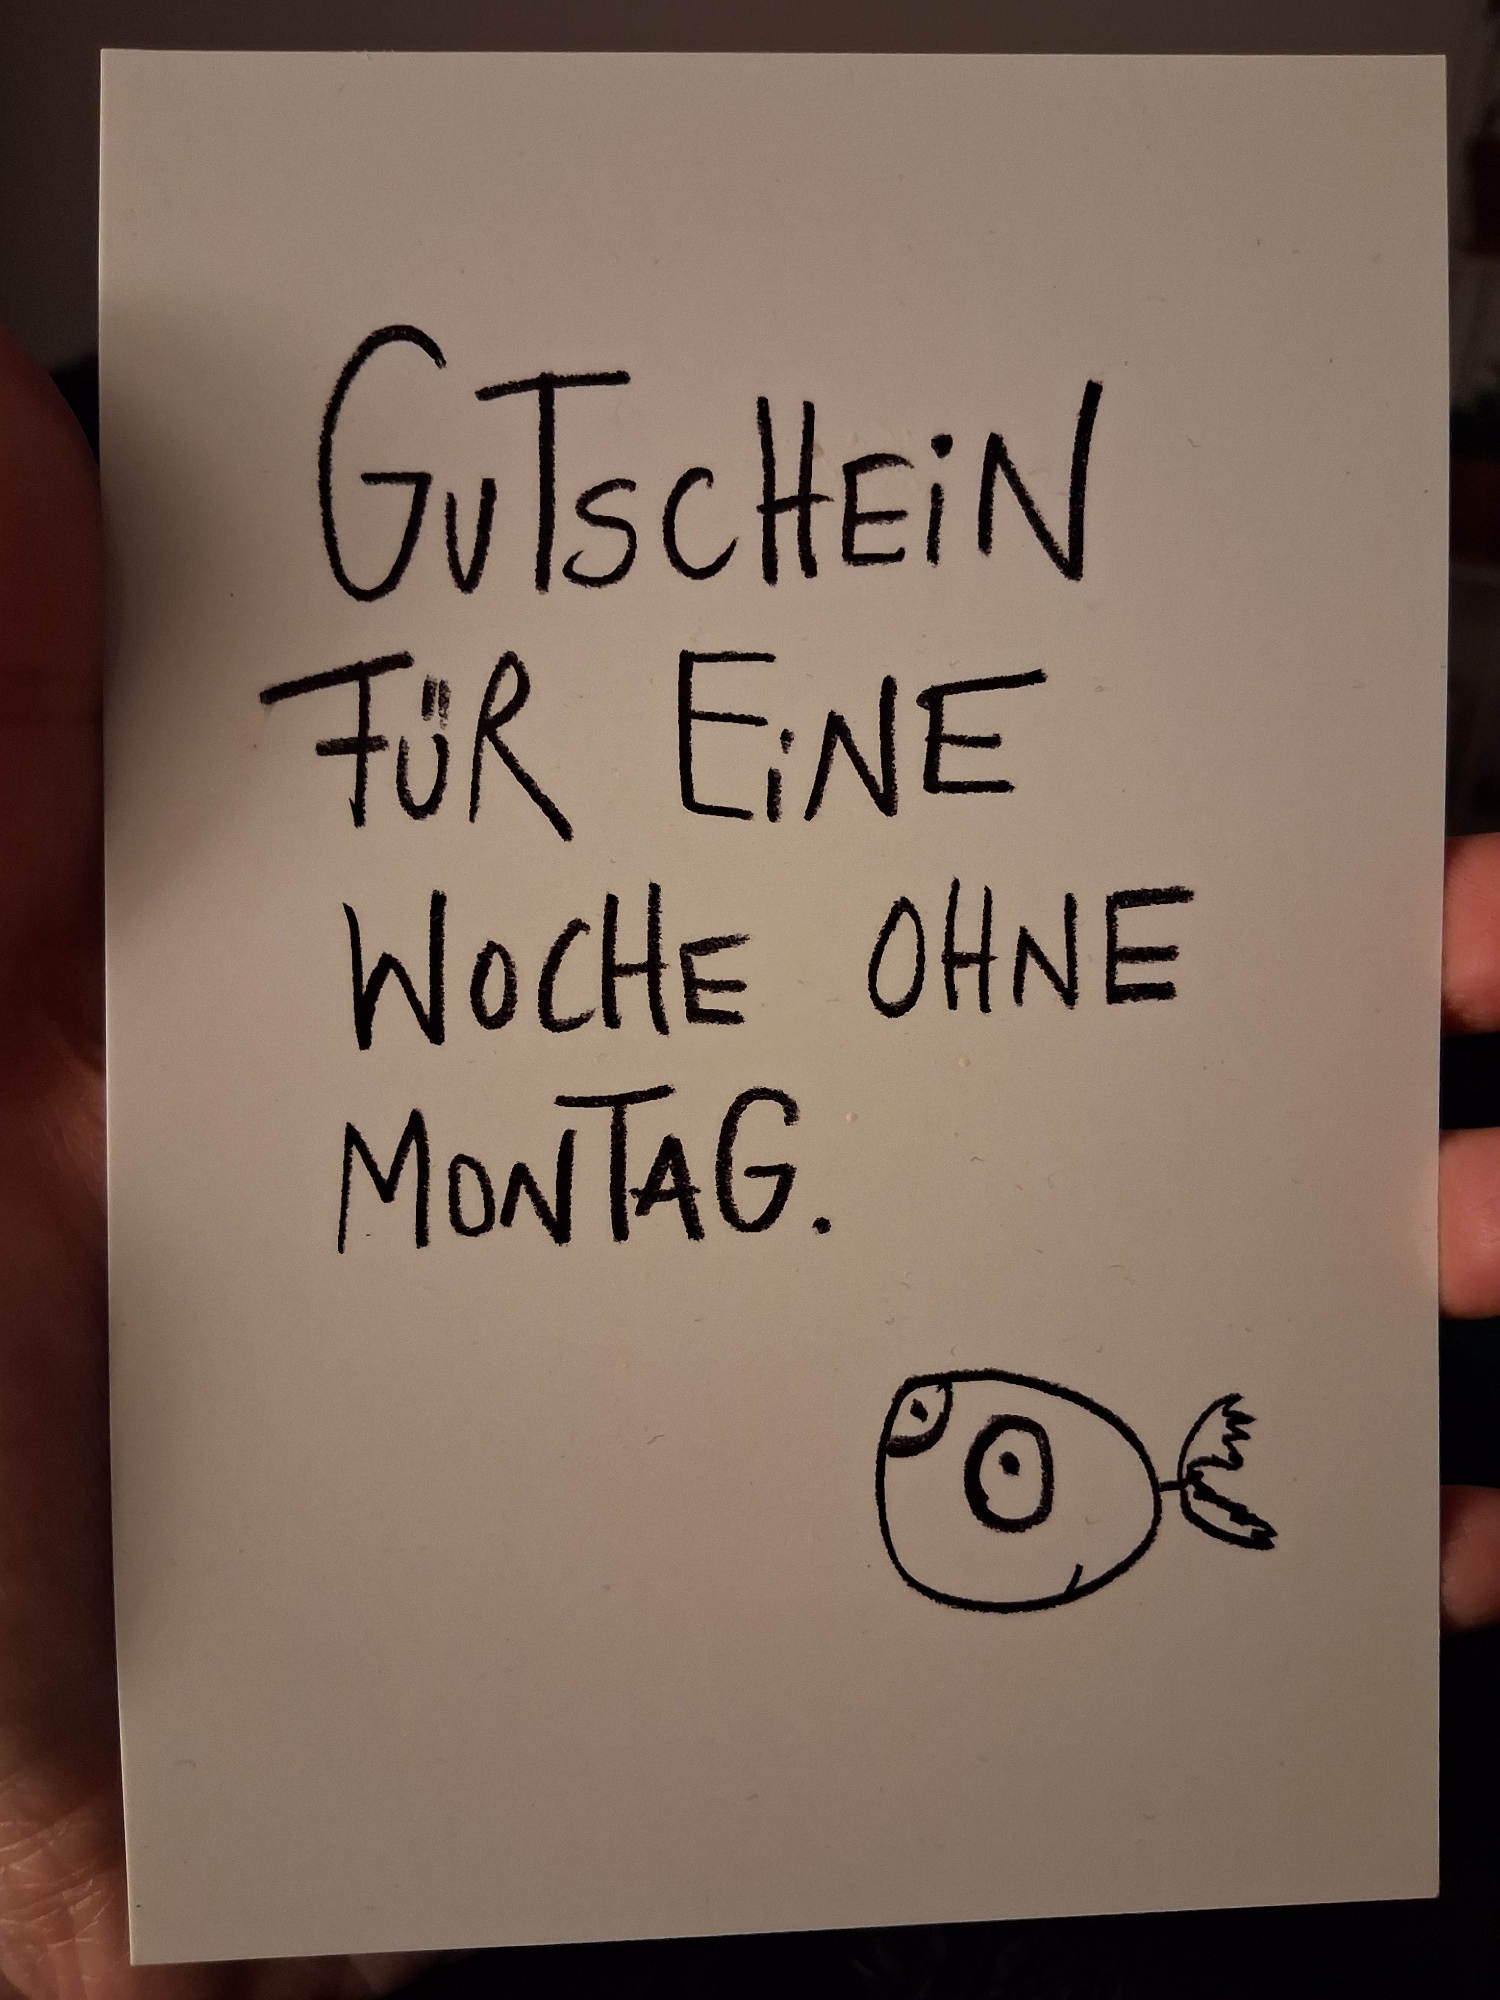 GUTSCHEIN
FÜR EINE
WOCHE OHNE
MONTAG.